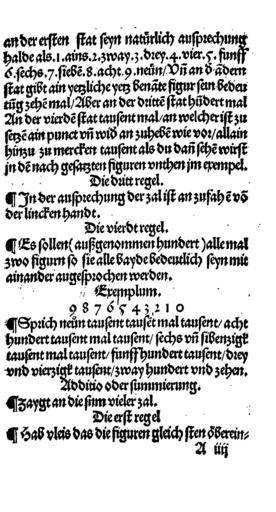 an der ersten stat seyn natürlich ausprechung
halde als.1.ains.2.zway.3.drey.4.vier.5.funff
6.sechs.7.siebē.8.acht.9.neün/Vñ an d̄ ādern
stat gibt ain yetzliche yetz benāte figur sein bedeu
tūg zehē mal/Aber an der dritte stat hūdert mal
An der vierdē stat tausent mal/an welcher ist zu
setzē ain punct vn̄ wid̄ an zuhebē wie vor/allain
hinzu zu mercken tausent als du dan̄ sehē wirst
jn dē nach gesatzten figuren vnthen jm exempel.
Die dritt regel.
¶ Jn der ausprechung der zal ist an zufahē vō
der lincken handt.
Die vierdt regel.
¶ Es sollen ( außgenomen hundert ) alle mal
zwo figurn so sie alle bayde bedeutlich seyn mit
ainander augesprochen werden.
Exemplum.
9 8 7 6 5 4 3 2 1 0
¶ Sprich neün tausent tausēt mal tausent/ acht
hundert tausent mal tausent/ sechs vn̄ sibenzigk
tausent mal tausent/ funffhundert tausent/drey
vnd vierzigk tausent/zway hundert vnd zehen.
Additio oder summierung.
¶ Zaygt an die sum vieler zal.
Die erst regel
¶ Hab vleis das die figuren gleich sten ōberein-
A iiij